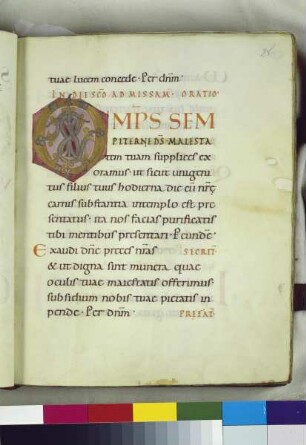 tuae lucem concede · Per dnm̄
IN DIE SCŌ AD MISSAM · ORATIO
OMP̄S SEM
PITERNE DS̄ MAIESTA
tem tuam supplices ex
oramus ut sicut unigeni
tus filius tuus hodierna die cū nr̄ę
carnis substantia in templo est prę
sentatus · ita nos facias purificatis
tibi mentibus presentari · Per eunde
Exaudi dnē preces nr̄as SECRET̄
& ut digna sint munera quae
oculis tuae maiestatis offerimus
subsidium nobis tuae pietatis in
pende · Per dnm̄ · PREFAT̄